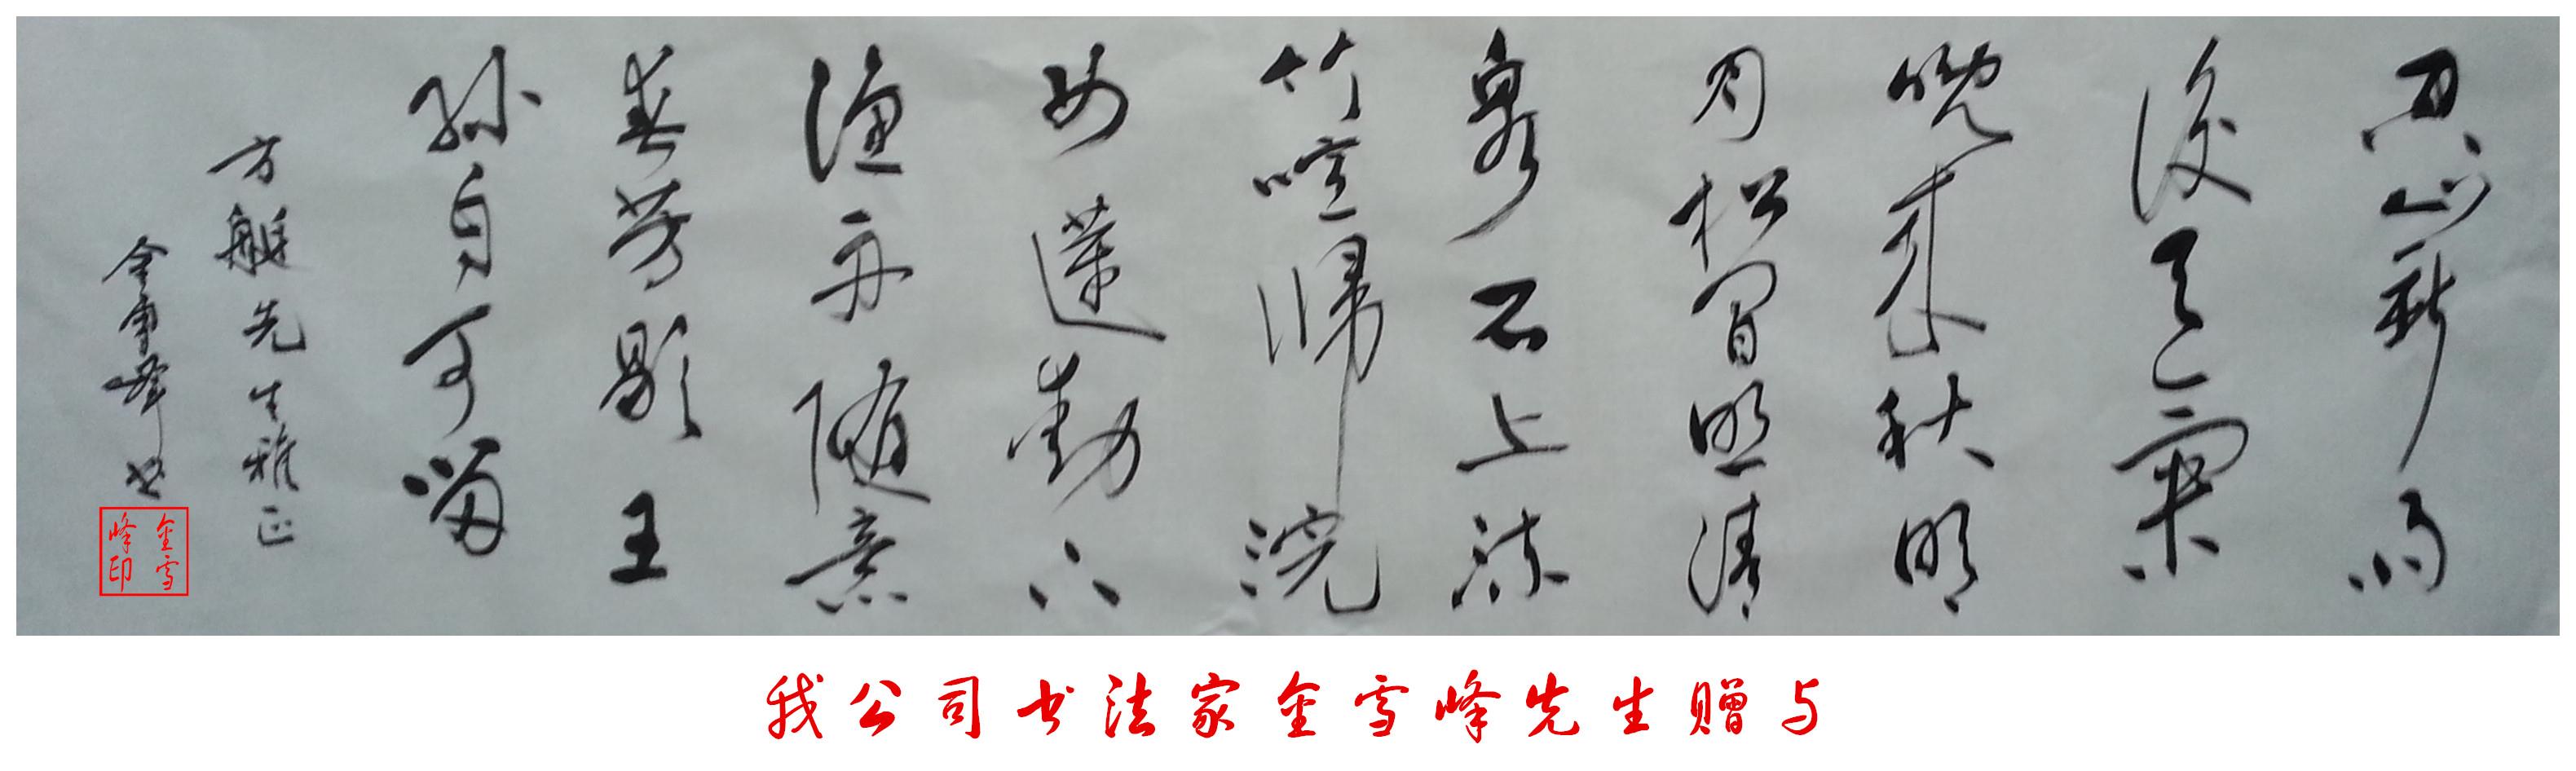 空山新雨
後天氣
晚來秋明
月松間照清
泉石上流
竹喧歸浣
女蓮動下
漁舟随意
春芳歇王
孫自可留
方艇先生雅正
金雪峰书
金雪峰印
我公司书法家金雪峰先生赠与